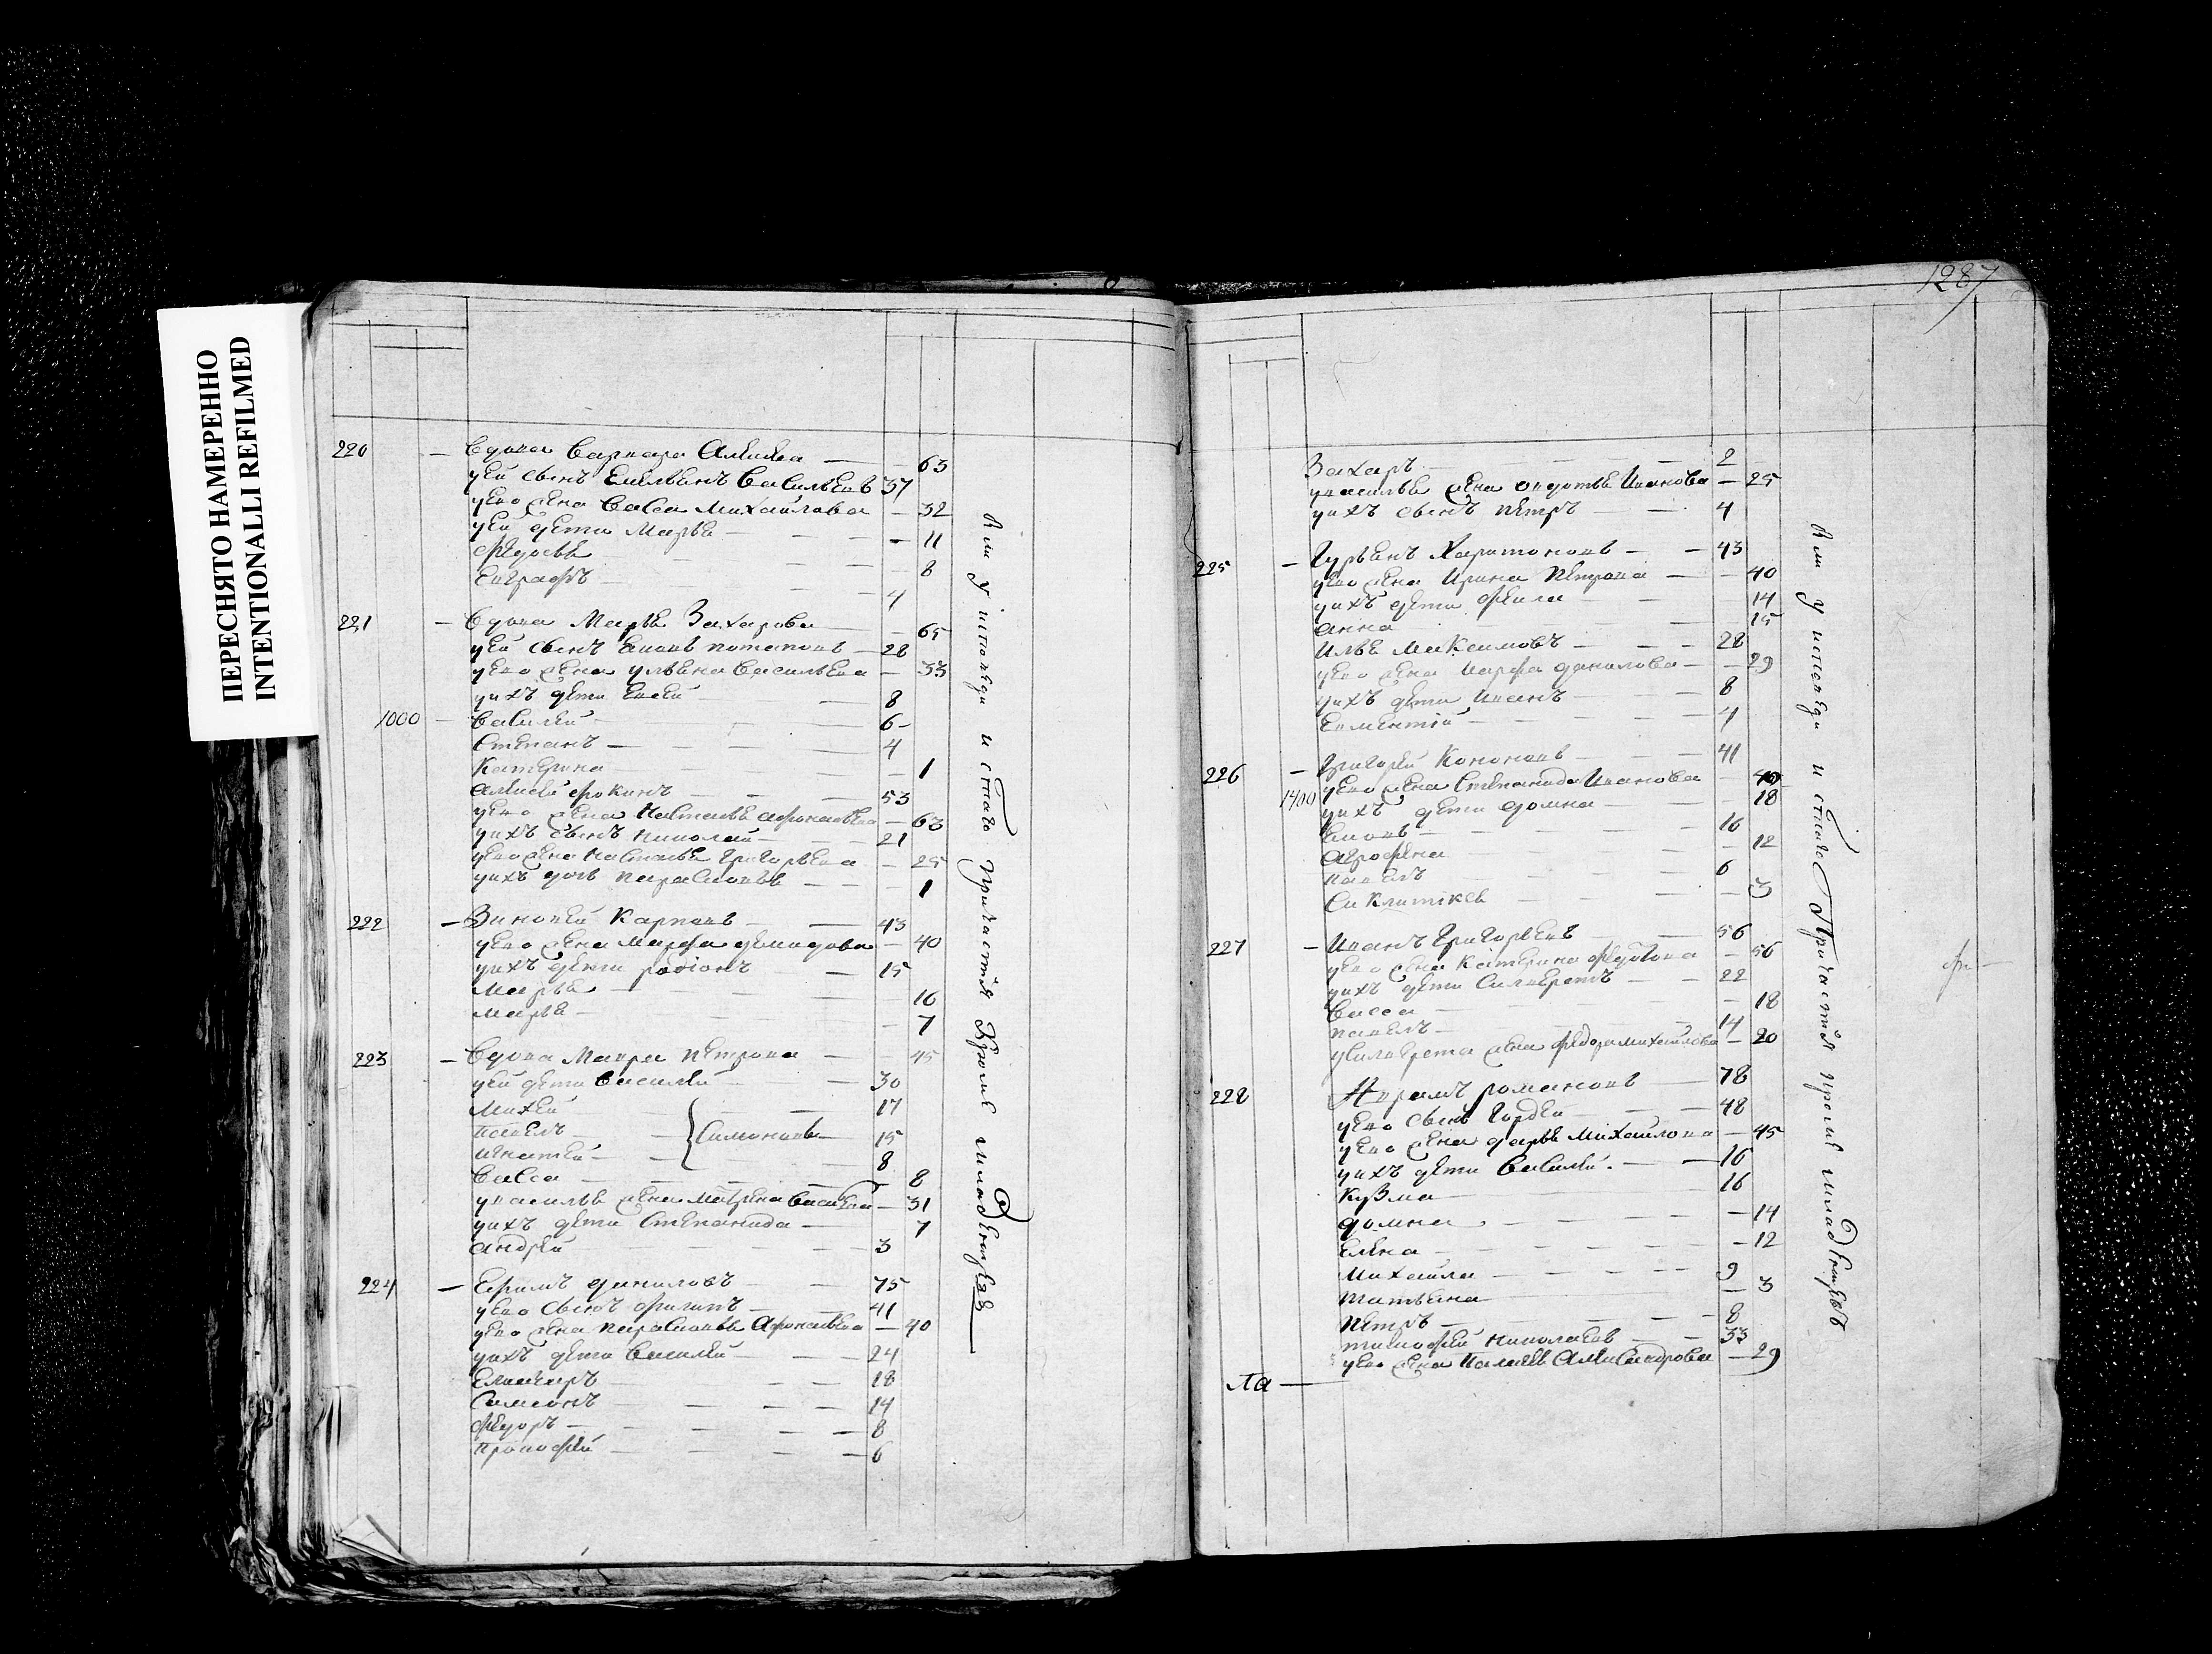 ПЕРЕСНЯТО НАМЕРЕННО
INTENTIONALLI REFILMED
220 — Вдова Варвара 63
уей сынъ Емельянъ Васильевъ 37
уево жена Васса Михайлова — 32
уей дети Марья — 11
Федосья — 8
Евграфъ — 4
221 — Вдова Марья Захарова — 65
уей сынъ потаповъ — 28
уево жена ульяна Васильева — 33
уихъ дети — 8
1000 — Василей — 6
Степанъ — 4
Катерина — 1
Алексей фокинъ — 53
уево жена Наталья — 63
уихъ сынъ николай — 21
уево жена Наталья Григорьева — 25
уихъ дочь парасковья — 1
222 — Зиновей Карповъ — 43
уево жена Марфа демидова — 40
уихъ дети родіонъ — 15
Марья — 10
Марья — 7
223 — Вдова Мавра петрова — 45
уей дети Василей — 30
Михей — 17
павелъ — Симоновы — 15
игнатей — 8
Васса — 8
увасилья жена Матрена — 31
уихъ дети Степанида — 7
андрей — 3
224 — Ефимъ даниловъ — 75
уево сынъ филипъ — 41
уево жена парасковья — 40
уихъ дети Василей — 24
18
Симеонъ — 14
федоръ — 8
прокофей — 6
Вси у исповеди и стаго причастія кроме младенцевъ
1287
Захаръ — 2
увасилья жена авдотья Иванова — 25
уихъ сынъ петръ — 4
225 — Гурьянъ Харитоновъ — 43
уево жена Ирина петрова — 40
уихъ дети фекла — 14
анна — 15
Илья Максимовъ — 28
уево жена марфа данилова — 29
уихъ дети Иванъ — 8
4
226 — Григорей Кононовъ — 41
1400 уево жена Степанида Иванова — 40
уихъ дети домна — 18
16
агрофена — 12
павелъ — 6
3
227 — Иванъ Григорьевъ — 56
уево жена Катерина федотова — 56
уихъ дети — 22
Васса — 18
павелъ — 14
жена федора михайлова — 20
228 романовъ — 78
уево сынъ Гордей — 48
уево жена дарья Михайлова — 45
уихъ дети Василей — 16
Кузма — 16
домна — 14
Елена — 12
Михайла — 9
татьяна — 3
петръ — 8
тимофей николаевъ — 33
уево жена Александрова — 29
Вси у исповеди и стаго Причастія кроме младенцевъ